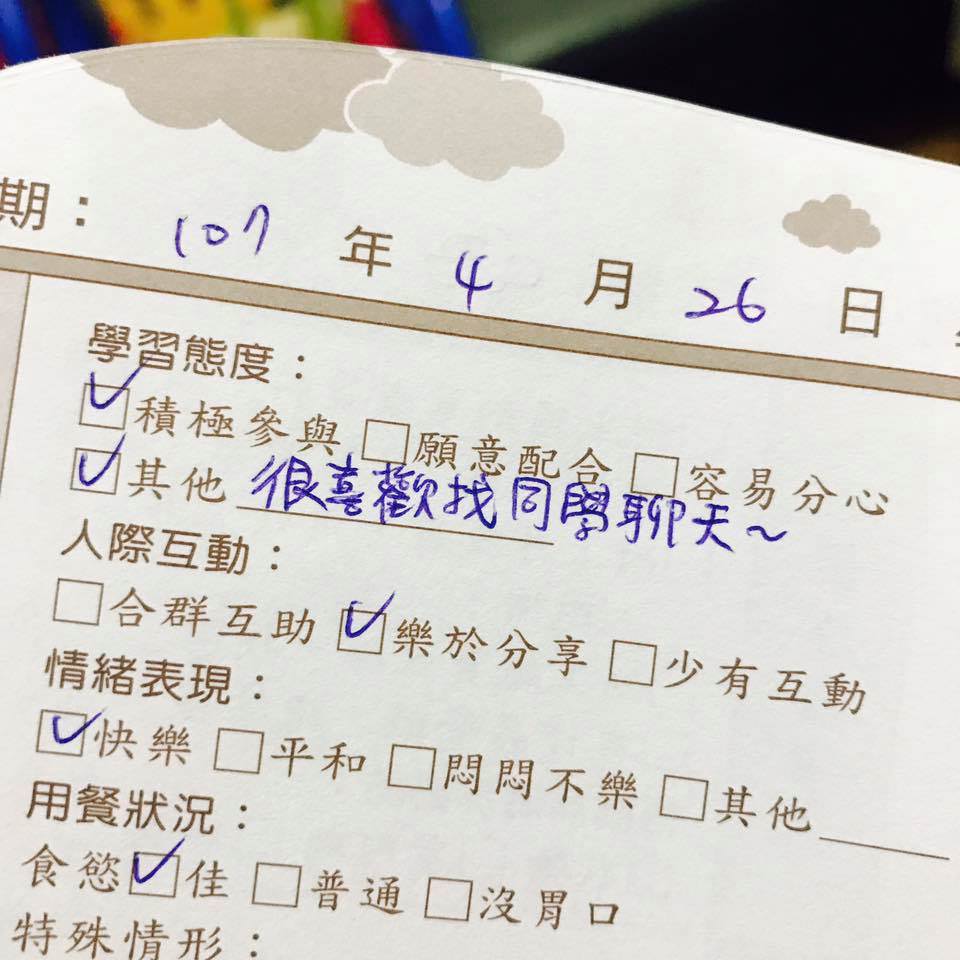 期： 107 年 4 月 26 日
學習態度：
☑積極參與 □願意配合 □容易分心
☑其他 很喜歡找同學聊天~
人際互動：
□合群互助 ☑樂於分享 □少有互動
情緒表現：
☑快樂 □平和 □悶悶不樂 □其他____
用餐狀況：
食慾☑佳 □普通 □沒胃口
特殊情形：